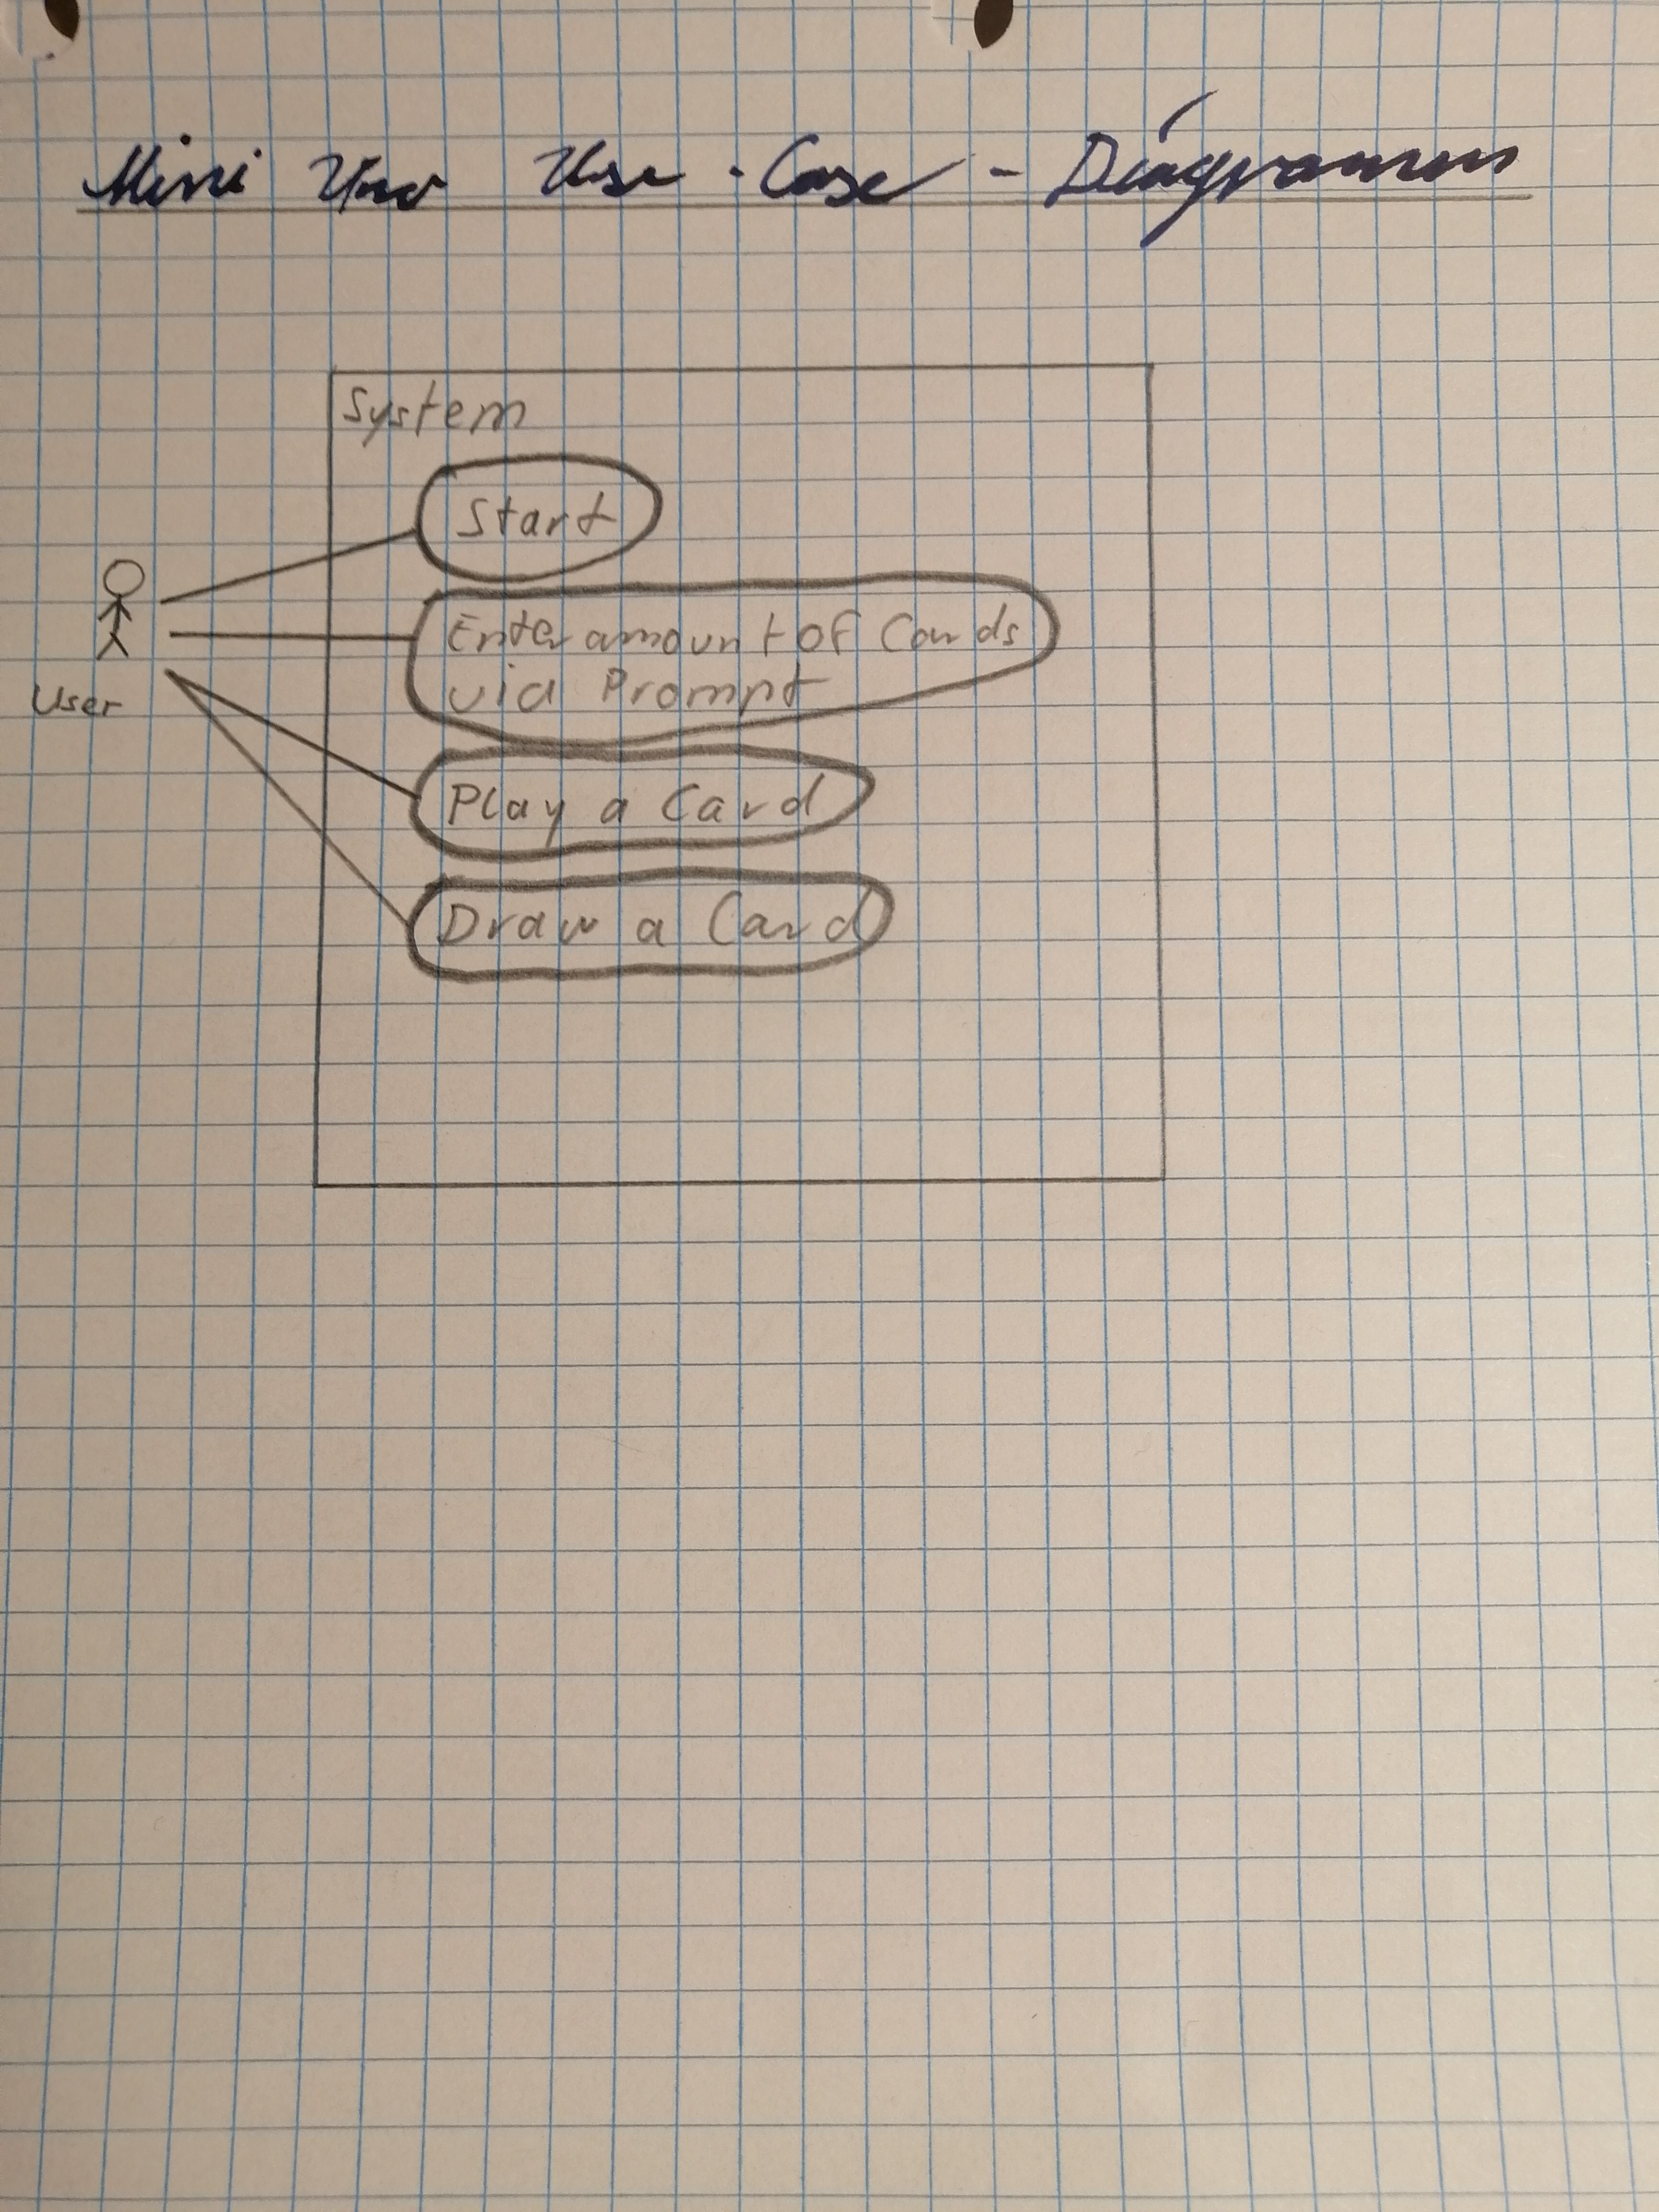 Mini Uno Use-Case-Diagramm
System
Start
Enter amount of Cards
via Prompt
User
Play a Card
Draw a Card